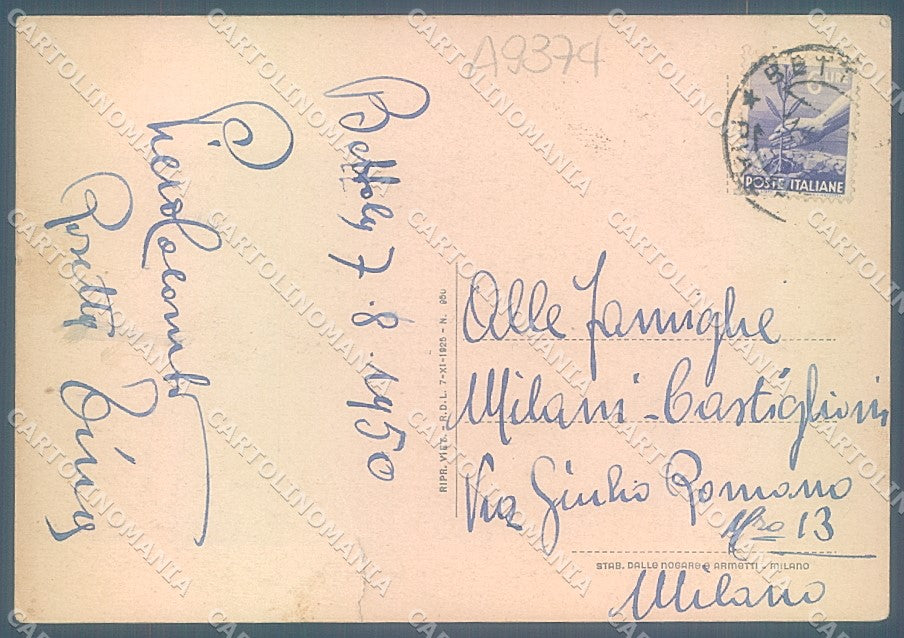 A9374
BETT
POSTE ITALIANE
Bettoly 7.8.1950
Alle Famiglie
Milani-Castiglioni
Via Giulio Romano
Nro 13
Milano
RIPR. VIET. - R.D.L. 7-XI-1925 - N. 950
STAB. DALLE NOGARE e ARMETTI - MILANO
CARTOLINOMANIA